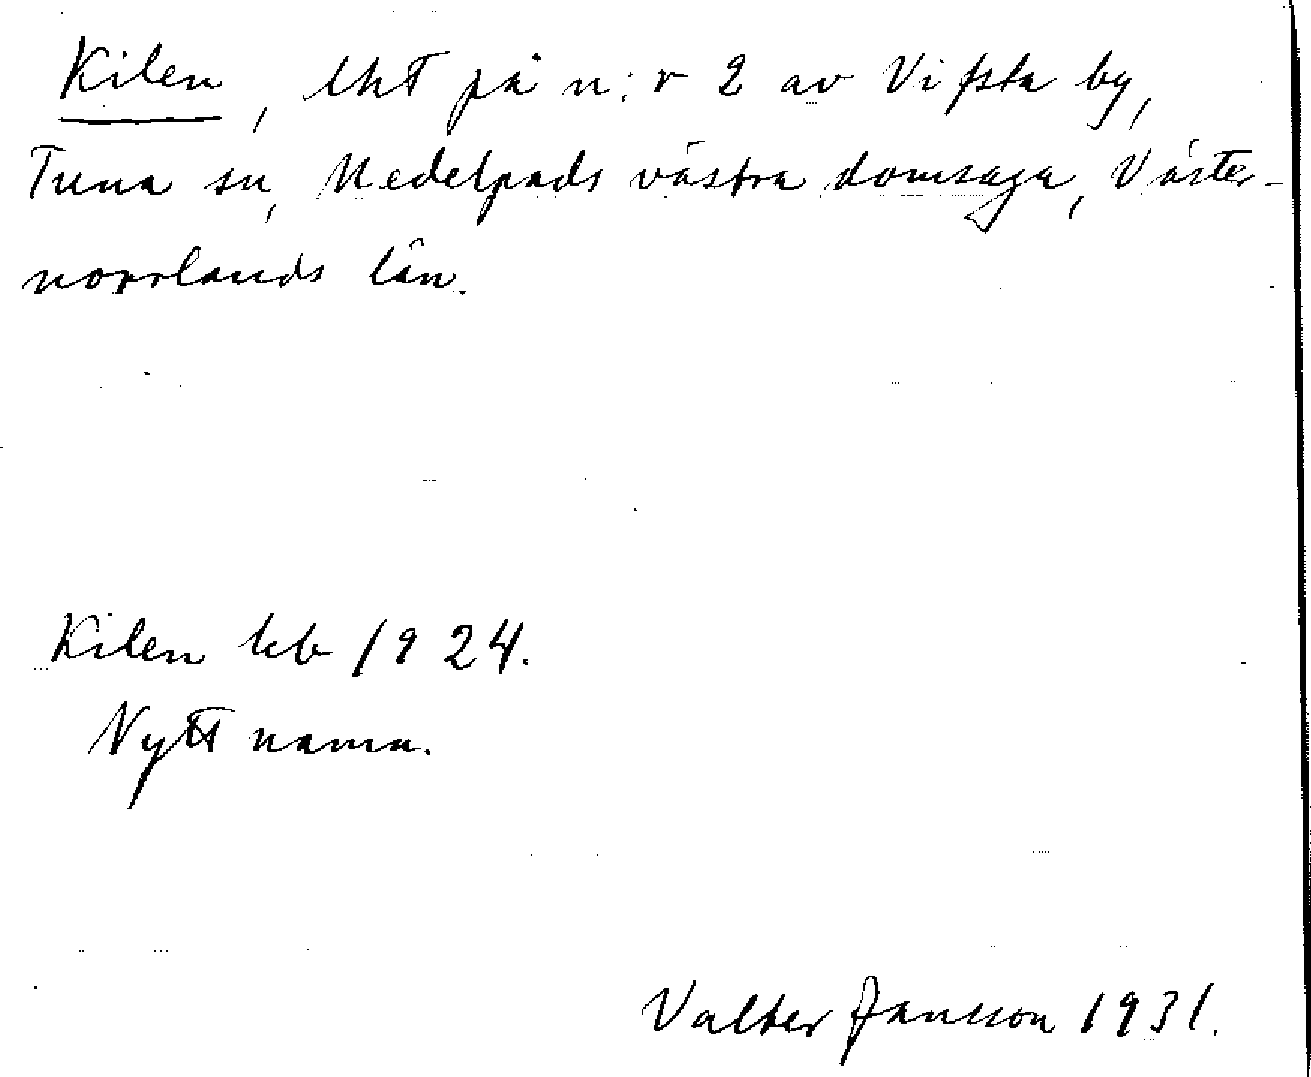 Kilen, lht på n:r 2 av Vifsta by,
Tuna sn, Medelpads västra domsaga, Väster-
norrlands län.
Kilen kb 1924.
Nytt namn.
Valter Jansson 1931.